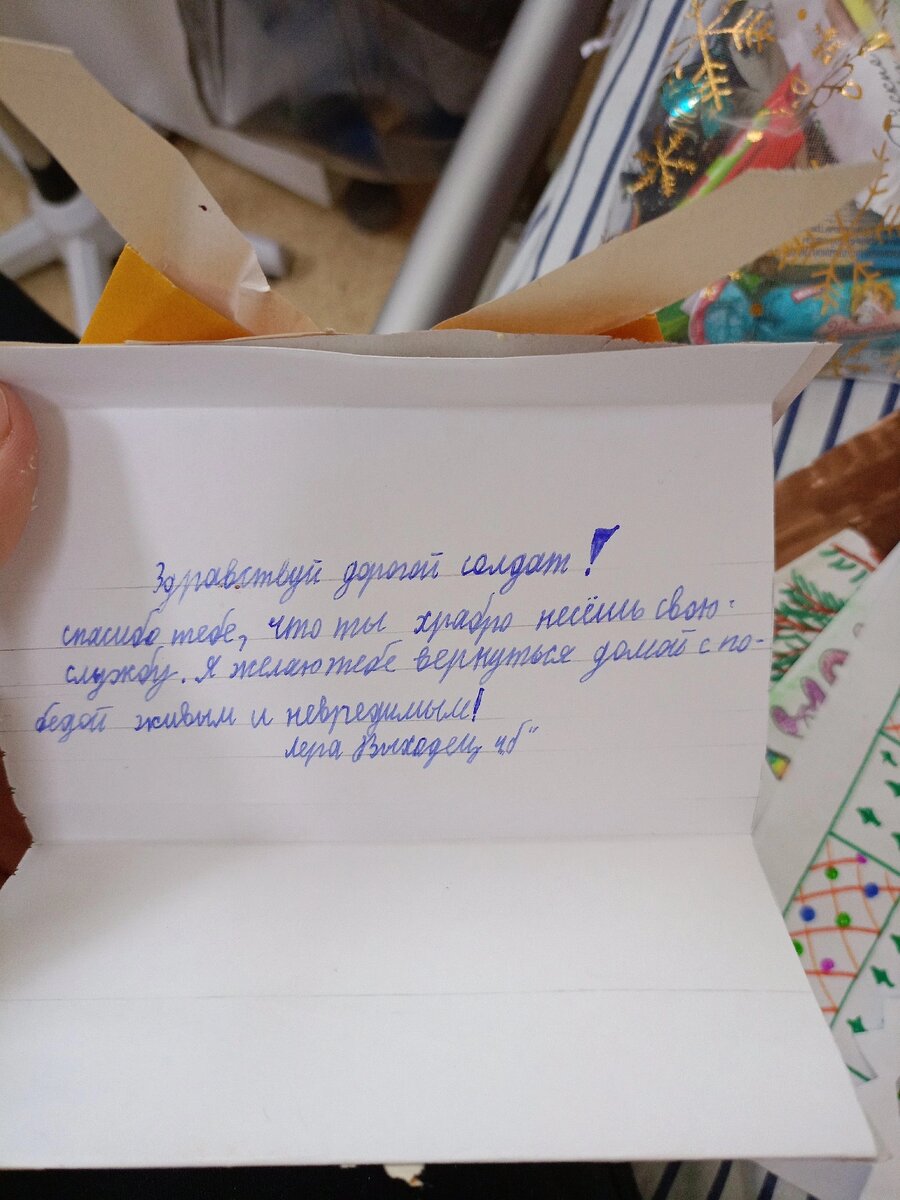 Здравствуй дорогой солдат!
спасибо тебе, что ты храбро несёшь свою
службу. Я желаю тебе вернуться домой с по-
бедой живым и невредимым!
Лера Выходец 4"б"